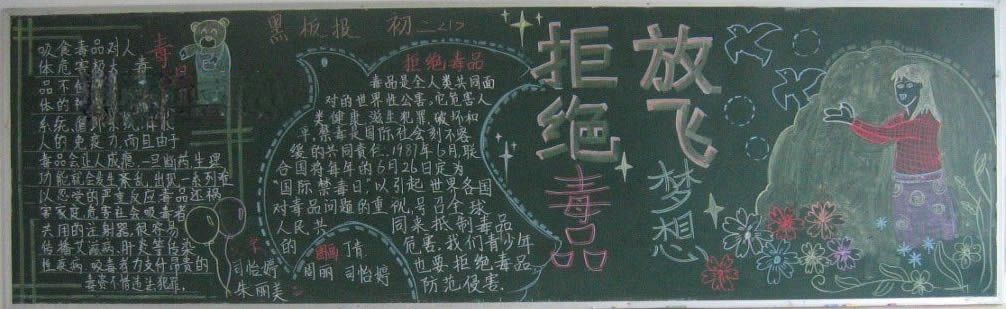 黑板报 初二<1>
吸食毒品对人
体危害极大.毒
品不但
体的神
人的免疫力,而且由于
毒品会让人成瘾,一旦断药生理
功能就会发生紊乱,出现一系列难
以忍受的严重反应毒品还祸
害家庭,危害社会吸毒者
共用的注射器,很容易
传播艾滋病,肝炎等传染
性疾病,吸毒者
毒资不惜违法犯罪.
拒绝毒品
毒品是全人类共同面
对的世界性公害,它危害人
类健康,滋生犯罪,破坏和
平,禁毒是国际社会刻不容
缓的共同责任.1987年6月,联
合国将每年的6月26日定为
"国际禁毒日",以引起世界各国
对毒品问题的重视,号召全球
人民共同来抵制毒品
的危害.我们青少年
也要拒绝毒品
防范侵害.
司怡婷
朱丽美
周丽 司怡婷
拒绝毒品
放飞梦想